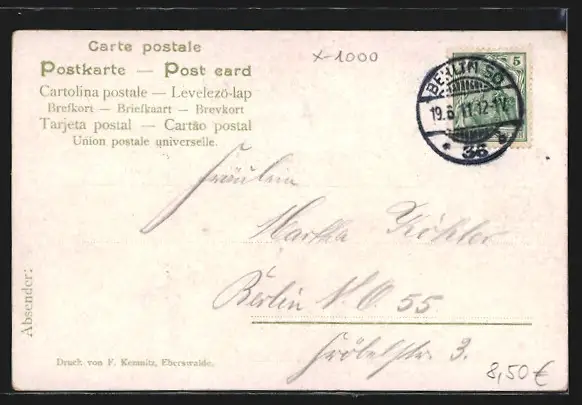 Carte postale
Postkarte — Post card
Cartolina postale — Levelező-lap
Brefkort — Briefkaart — Brevkort
Tarjeta postal — Cartão postal
Union postale universelle.
x-1000
5
BERLIN SO
19.6.11.12-1V.
* 36 a
Fräulein
Martha Köhler
Berlin N. O 55
Fröbelstr. 3.
Absender:
Druck von F. Kemnitz, Eberswalde.
8,50€